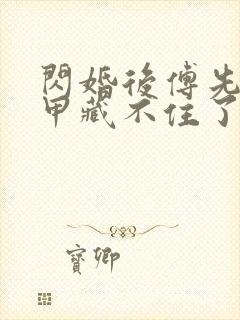 閃婚後傅先
甲藏不住了
寶卿